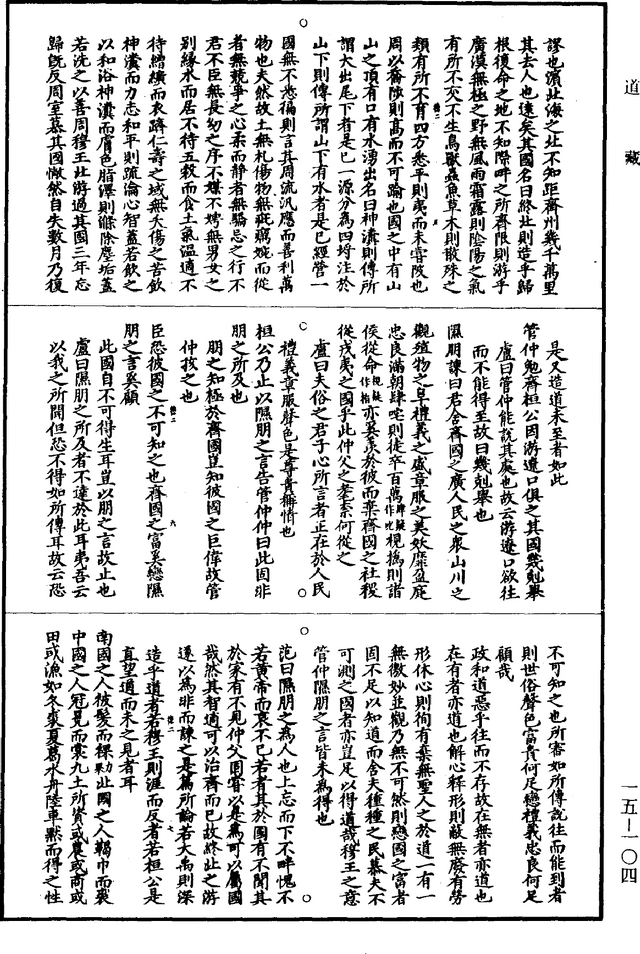 道藏
謬也濱北海之北不知距齊州幾千萬里
其去人也遠矣其國名曰終北則造乎歸
根復命之地不知際畔之所齊限則游乎
廣漠無極之野無風雨霜露則陰陽之氣
有所不交不生鳥獸蟲魚草木則散殊之
類有所不育四方悉平則夷而未嘗陂也
周以喬陟則高而不可踰也國之中有山
山之頂有口有水湧出名曰神瀵則傳所
謂大出尾下者是已一源分為四埒注於
山下則傳所謂山下有水者是已經營一
國無不悉徧則言其周流汎應而善利萬
物也夫然故土無札傷物無疵癘婉而從
者無競爭之心柔而靜者無驕忌之行不
君不臣無長幼之序不媒不娉無男女之
別緣水而居不待五穀而食土氣溫適不
待繒纊而衣躋仁壽之域無夭傷之苦飲
神瀵而力志和平則疏瀹心智蓋若飲之
以和浴神瀵而膚色脂澤則滌除塵垢蓋
若洗之以善周穆王北游過其國三年忘
歸旣反周室慕其國惝然自失數月乃復
是又造道未至者如此
管仲勉齊桓公因游遼口俱之其國幾剋舉
盧曰管仲能說其處也故云游遼口欲往
而不能得至故曰幾剋舉也
隰朋諫曰君舍齊國之廣人民之衆山川之
觀殖物之阜禮義之盛章服之美妖靡盈庭
忠良滿朝肆咤則徒卒百萬肆疑作叱視撝則諸
侯從命視疑作指亦奚羨於彼而棄齊國之社稷
從戎夷之國乎此仲父之耄柰何從之
盧曰夫俗之君子心所言者正在於人民
禮義章服聲色是尊貴稱情也
桓公乃止以隰朋之言告管仲仲曰此固非
朋之所及也
朋之知極於齊國豈知彼國之巨偉故管
仲抆之也
臣恐彼國之不可知之也齊國之富奚戀隰
朋之言奚顧
此國自不可得生耳豈以朋之言故止也
盧曰隰朋之所及者不達於此耳夷吾云
以我之所聞但恐不得如所傳耳故云恐
不可知之也所審如所傳說往而能到者
則世俗聲色富貴何足戀禮義忠良何足
顧哉
政和道惡乎往而不存故在無者亦道也
在有者亦道也解心釋形則敵無廢有勞
形休心則徇有棄無聖人之於道一有一
無徼妙並觀乃無不可然則戀國之富者
固不足以知道而舍夫種種之民慕夫不
可測之國者亦豈足以得道哉穆王之意
管仲隰朋之言皆未為得也
范曰隰朋之為人也上忘而下不畔愧不
若黃帝而哀不已若者其於國有不聞其
於家有不見仲父固嘗以是為可以屬國
哉然其智適可以治齊而已故終北之游
遂以為非而諫之是篇所論若大禹則深
造乎道者若穆王則涯而反者若桓公是
直望道而未之見者耳
南國之人被髮而裸北國之人鞨巾而裘
中國之人冠冕而裳九土所資或農或商或
田或漁如冬裘夏葛水舟陸車默而得之性
一五—一〇四